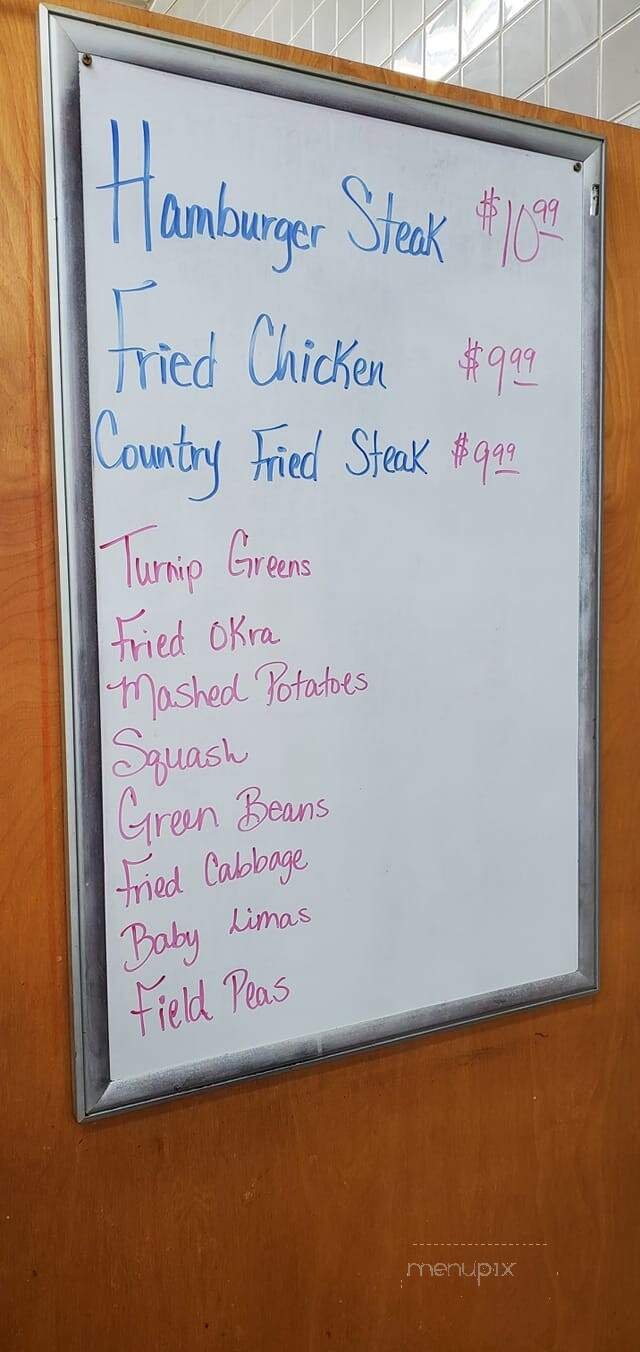 Hamburger Steak $10.99
Fried Chicken $9.99
Country Fried Steak $9.99
Turnip Greens
Fried Okra
Mashed Potatoes
Squash
Green Beans
Fried Cabbage
Baby Limas
Field Peas
menupix